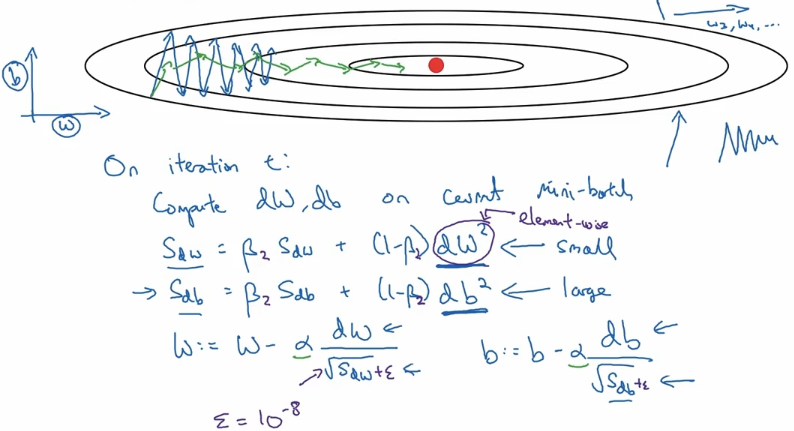 w₂, w₄, ...
b
w
On iteration t:
Compute dW, db on current mini-batch
element-wise
S_dw = β₂ S_dw + (1-β₂) dW² ← small
→ S_db = β₂ S_db + (1-β₂) db² ← large
W := W - α dW / √S_dw + ε ← b := b - α db / √S_db + ε ←
ε = 10⁻⁸